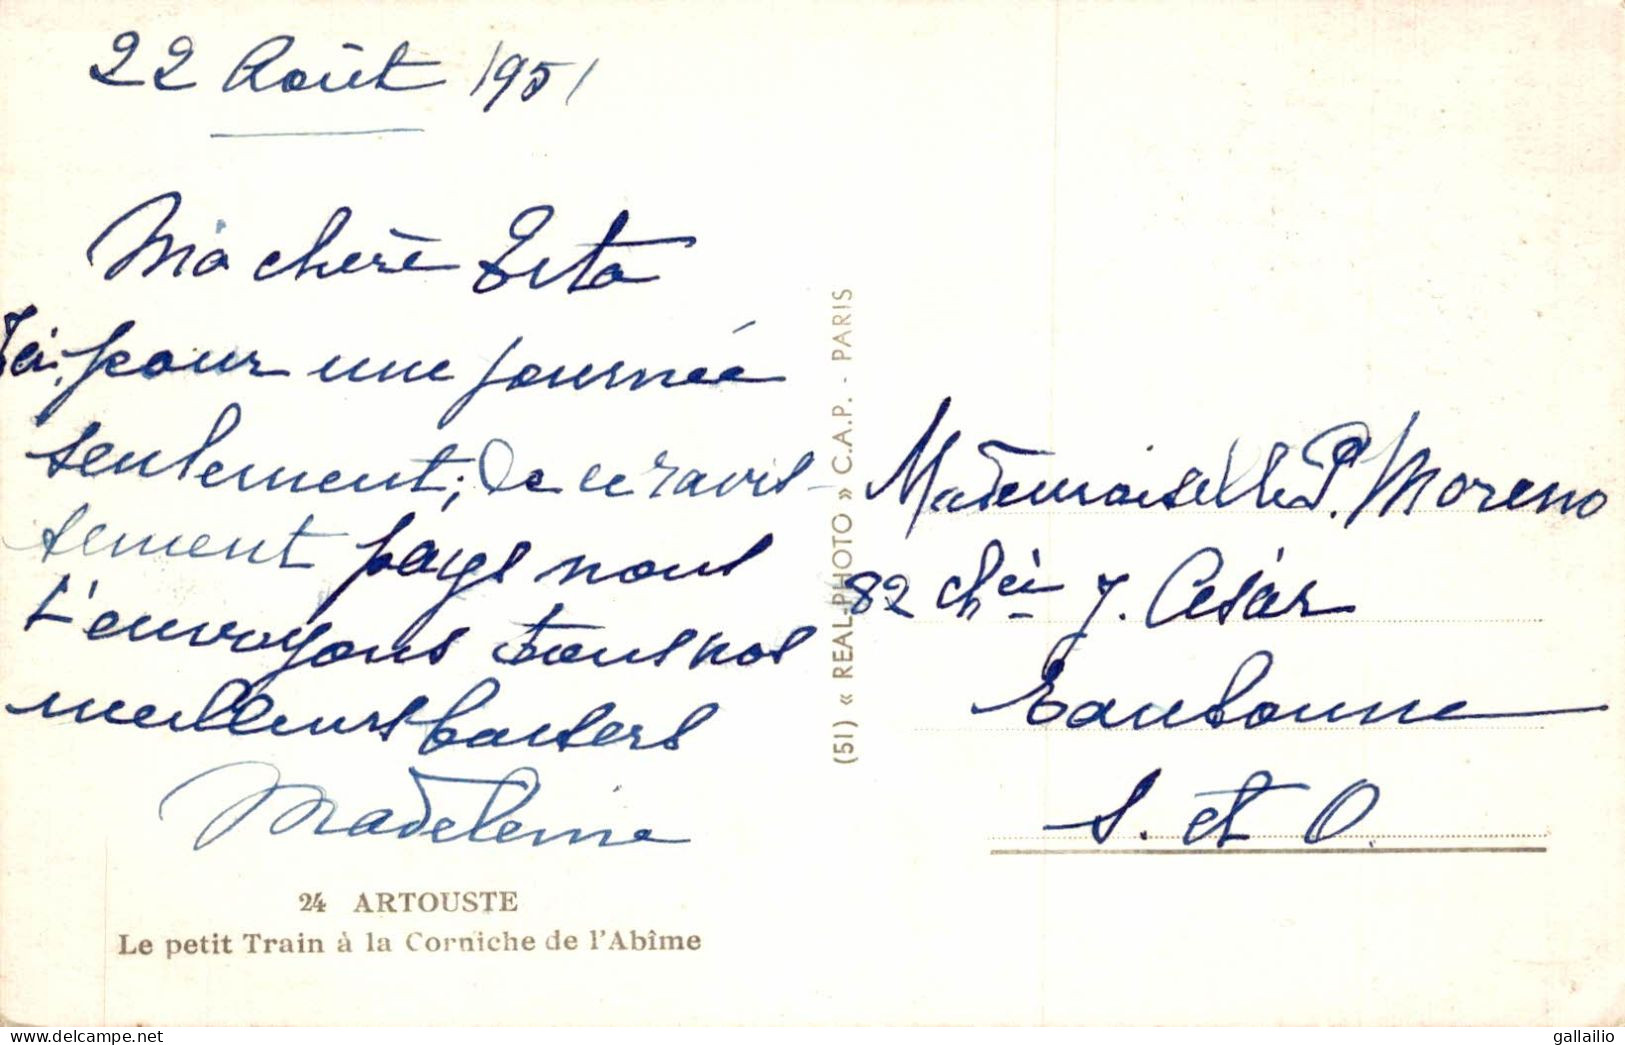 22 Août 1951
Ma chère Tita
Ici, pour une journée
seulement; de ce ravis-
sement pays nous
t'envoyons tous nos
meilleurs baisers
Madeleine
24 ARTOUSTE
Le petit Train à la Corniche de l'Abîme
(51) « REAL-PHOTO » C.A.P. - PARIS
Mademoiselle P. Moreno
82 chéé J. César
Eaubonne
S. et O.
gallailio